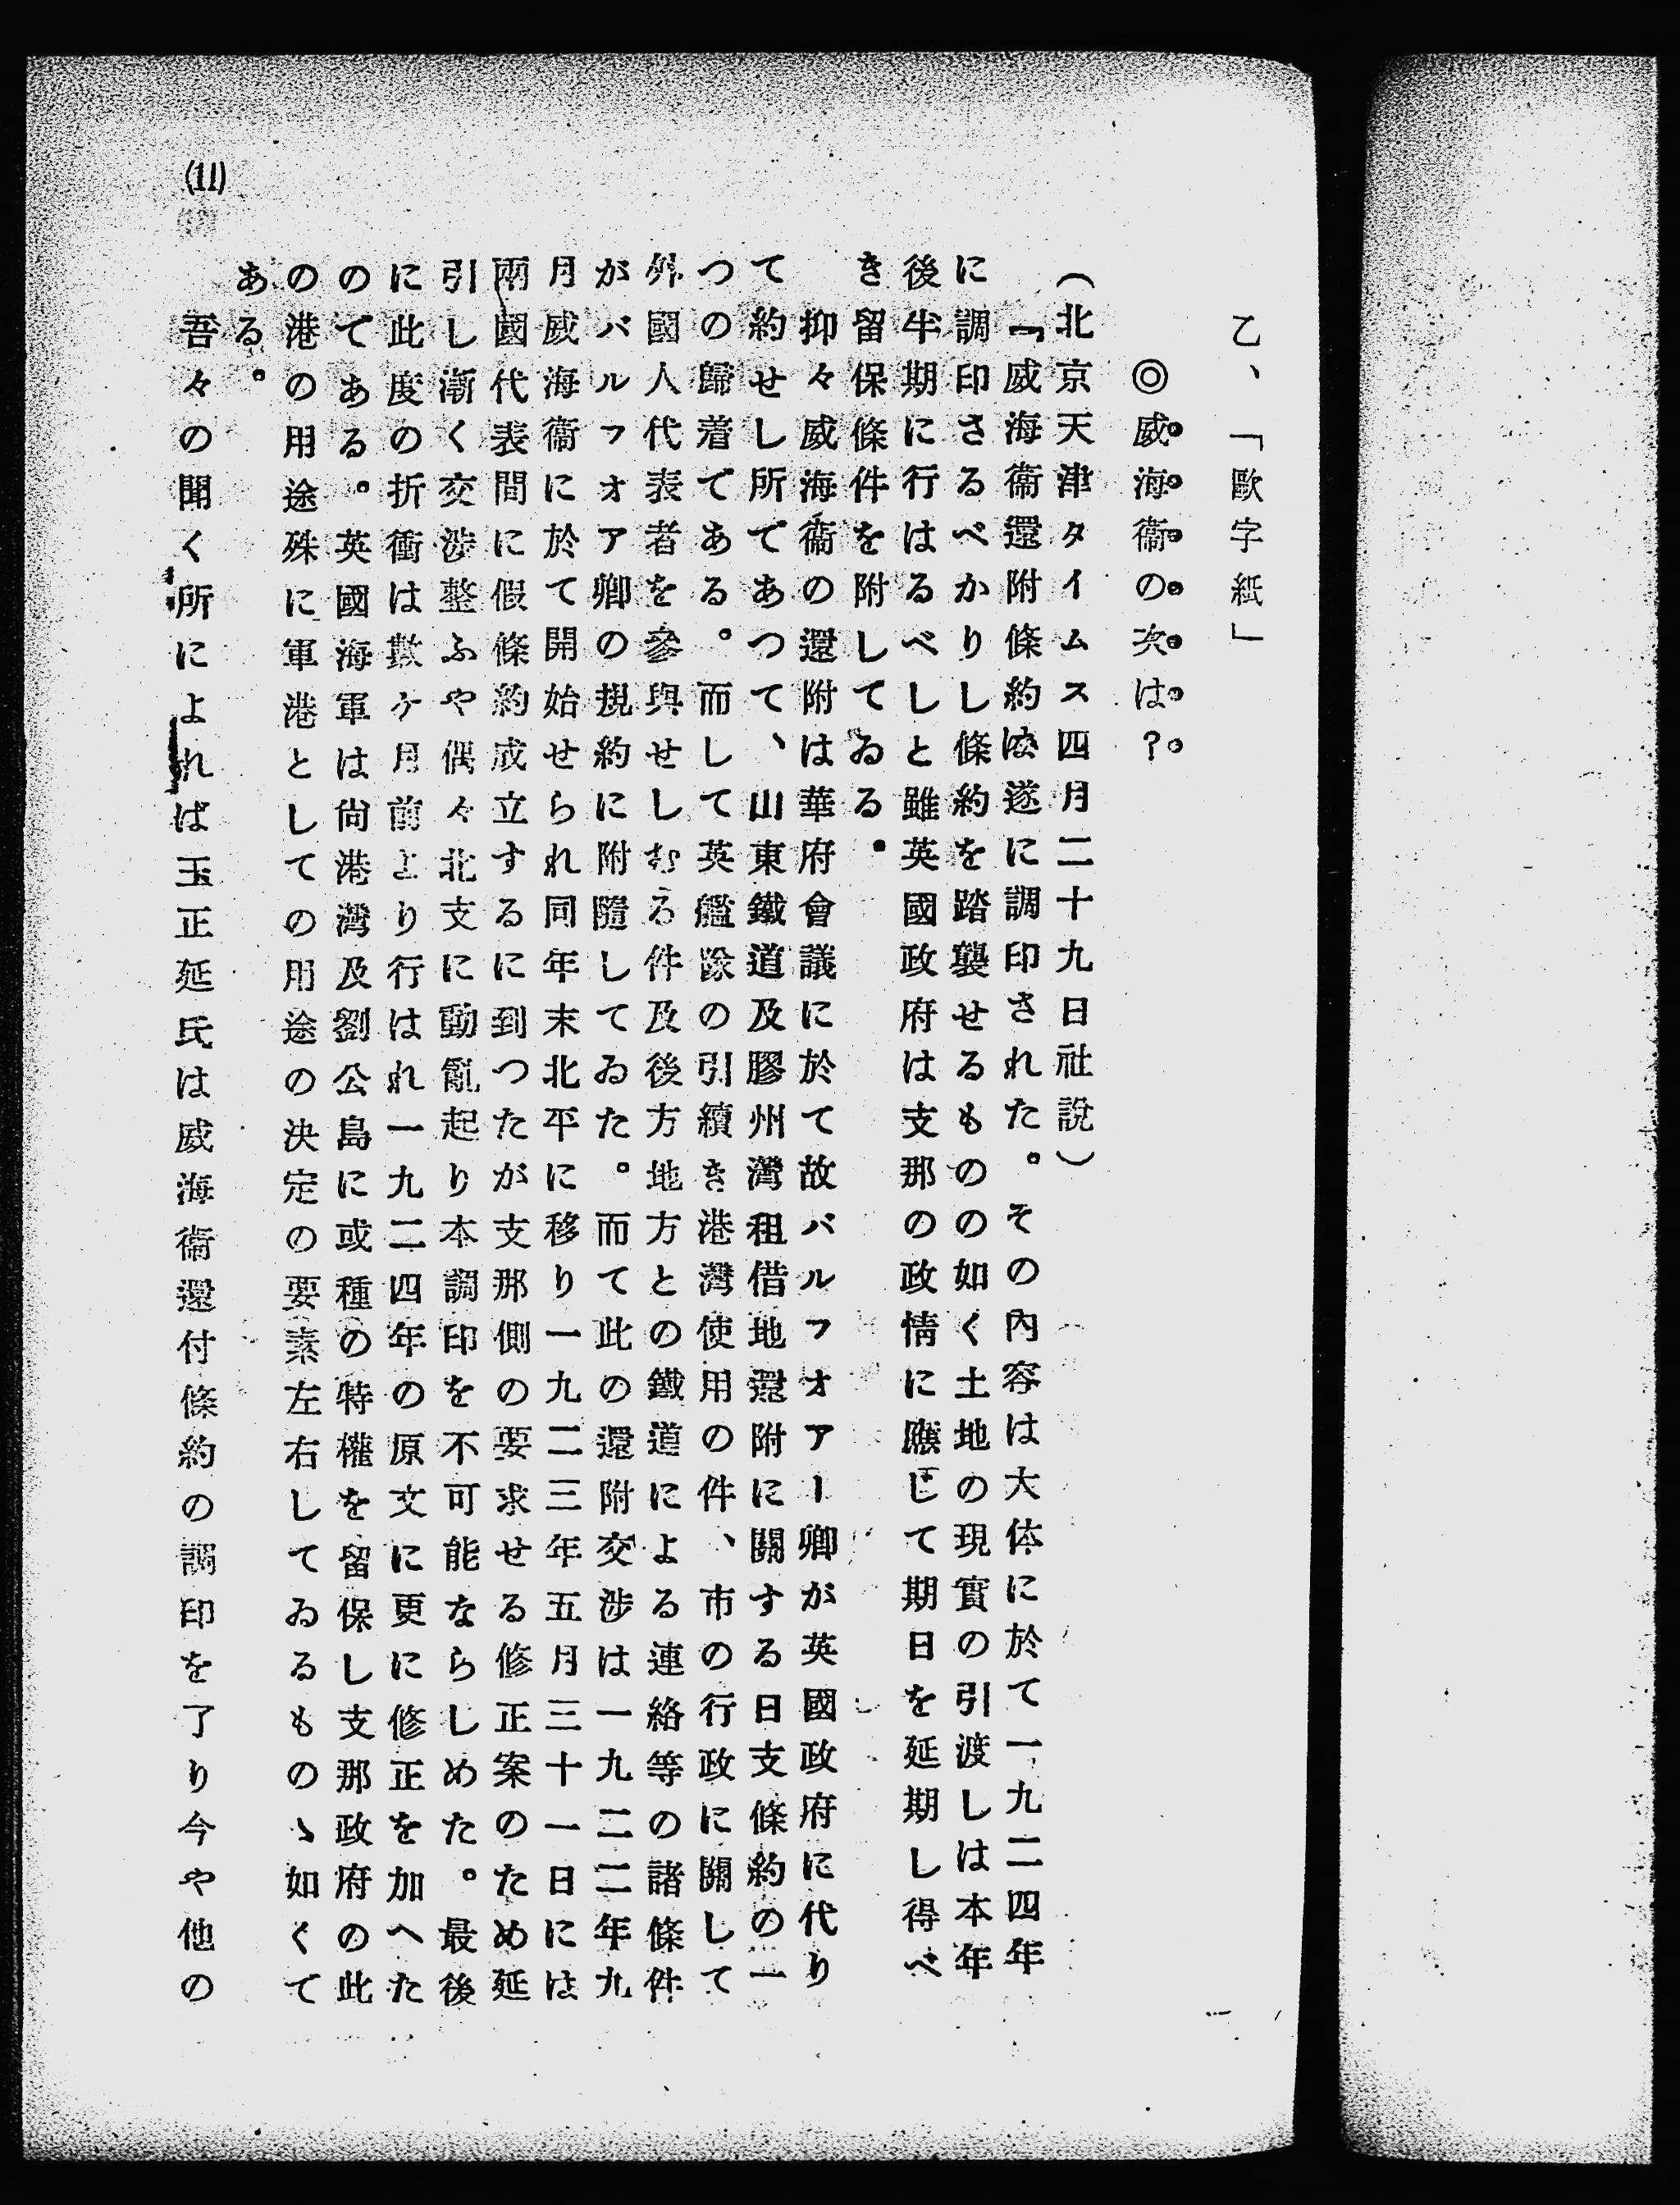 乙、「歐字紙」
◎威海衞の次は?
(北京天津タイムス四月二十九日社說)
「威海衞還附條約は遂に調印された。その內容は大体に於て一九二四年
に調印さるべかりし條約を踏襲せるものの如く土地の現實の引渡しは本年
後半期に行はるべしと雖英國政府は支那の政情に應じて期日を延期し得べ
き留保條件を附してゐる。
抑々威海衞の還附は華府會議に於て故バルフオアー卿が英國政府に代り
て約せし所であつて、山東鐵道及膠州灣租借地還附に關する日支條約の一
つの歸着である。而して英艦隊の引續き港灣使用の件、市の行政に關して
外國人代表者を參與せしむる件及後方地方との鐵道による連絡等の諸條件
がバルフオア卿の規約に附隨してゐた。而て此の還附交涉は一九二二年九
月威海衞に於て開始せられ同年末北平に移り一九二三年五月三十一日には
兩國代表間に假條約成立するに到つたが支那側の要求せる修正案のため延
引し漸く交涉整ふや偶々北支に動亂起り本調印を不可能ならしめた。最後
に此度の折衝は數ケ月前より行はれ一九二四年の原文に更に修正を加へた
のである。英國海軍は尙港灣及劉公島に或種の特權を留保し支那政府の此
の港の用途殊に軍港としての用途の決定の要素左右してゐるものゝ如くて
ある。
吾々の聞く所によれば玉正延氏は威海衞還付條約の調印を了り今や他の
(11)